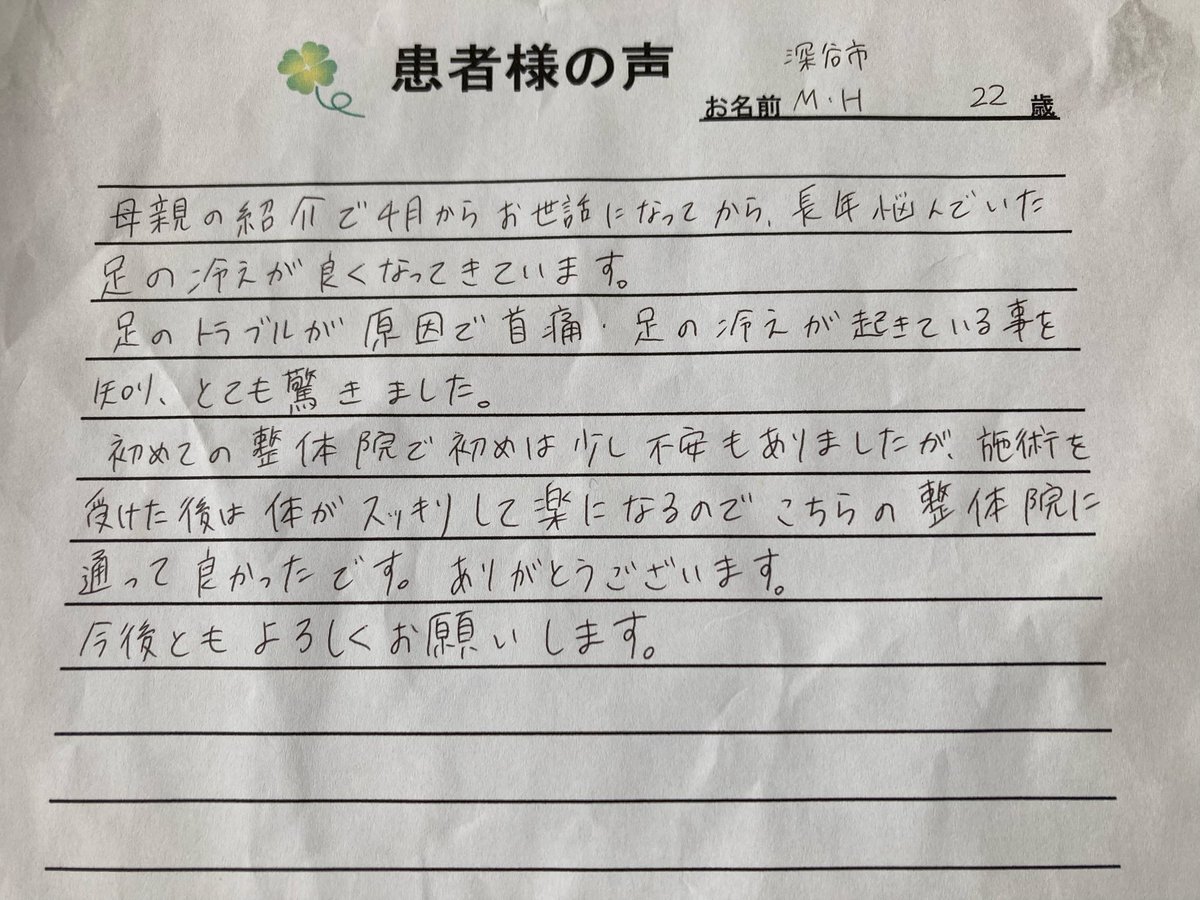 患者様の声
深谷市
お名前 M・H 22 歳
母親の紹介で4月からお世話になってから、長年悩んでいた
足の冷えが良くなってきています。
足のトラブルが原因で首痛・足の冷えが起きている事を
知り、とても驚きました。
初めての整体院で初めは少し不安もありましたが、施術を
受けた後は体がスッキリして楽になるのでこちらの整体院に
通って良かったです。ありがとうございます。
今後ともよろしくお願いします。